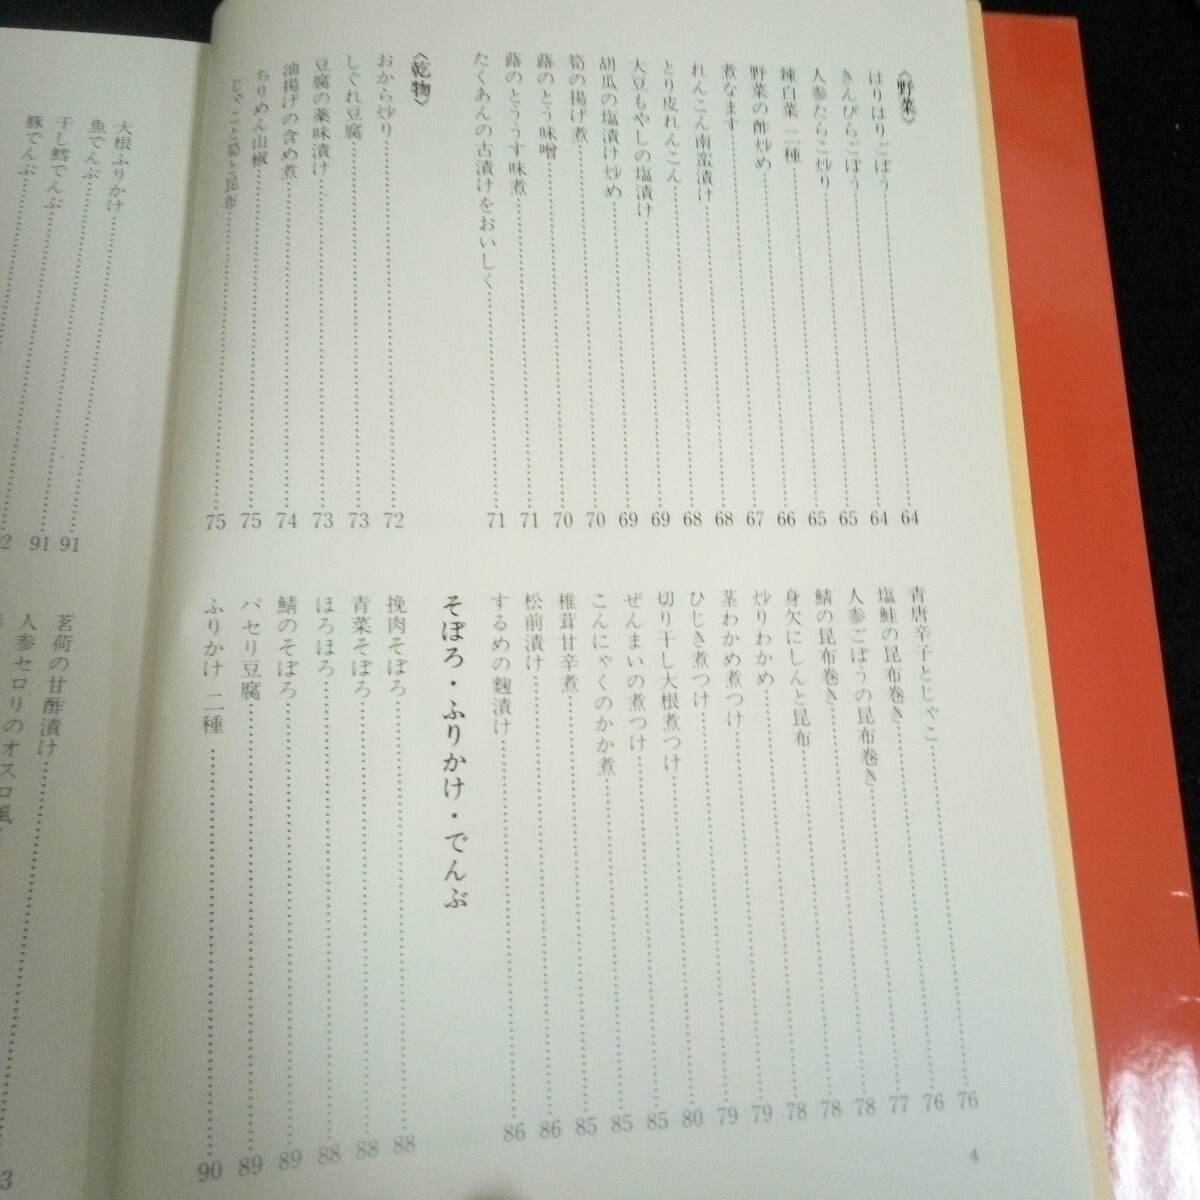 〈野菜〉
はりはりごぼう……64
きんぴらごぼう……64
人参たらこ炒り……65
辣白菜 二種……65
野菜の酢炒め……66
煮なます……67
れんこん南蛮漬け……68
とり皮れんこん……68
大豆もやしの塩漬け……69
胡瓜の塩漬け炒め……69
筍の揚げ煮……70
蕗のとう味噌……70
蕗のとううす味煮……71
たくあんの古漬けをおいしく……71
〈乾物〉
おから炒り……72
しぐれ豆腐……73
豆腐の薬味漬け……73
油揚げの含め煮……74
ちりめん山椒……75
じゃこと筍と昆布……75
青唐辛子とじゃこ……76
塩鮭の昆布巻き……76
人参ごぼうの昆布巻き……77
鯖の昆布巻き……78
身欠にしんと昆布……78
炒りわかめ……78
茎わかめ煮つけ……79
ひじき煮つけ……79
切り干し大根煮つけ……80
ぜんまいの煮つけ……85
こんにゃくのかか煮……85
椎茸甘辛煮……85
松前漬け……86
するめの麹漬け……86
そぼろ・ふりかけ・でんぶ
挽肉そぼろ……88
青菜そぼろ……88
ほろほろ……88
鯖のそぼろ……89
パセリ豆腐……89
ふりかけ 二種……90
4
大根ふりかけ……91
魚でんぶ……91
干し鱈でんぶ……
豚でんぶ……
茗荷の甘酢漬け……
人参セロリのオスロ風